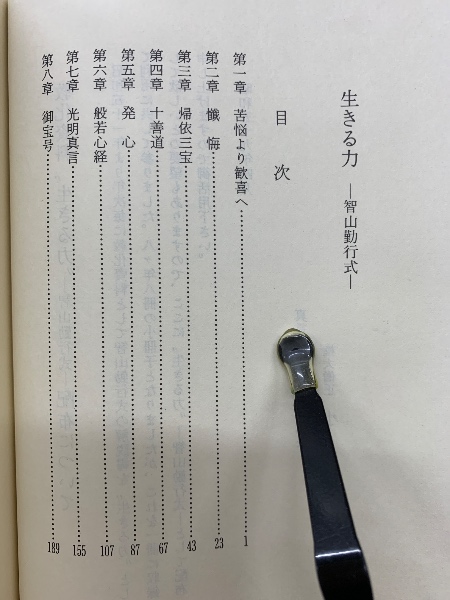 生きる力 ―智山勤行式―
目次
第一章 苦悩より歓喜へ……………………1
第二章 懺悔……………………23
第三章 帰依三宝……………………43
第四章 十善道……………………67
第五章 発心……………………87
第六章 般若心経……………………107
第七章 光明真言……………………155
第八章 御宝号……………………189